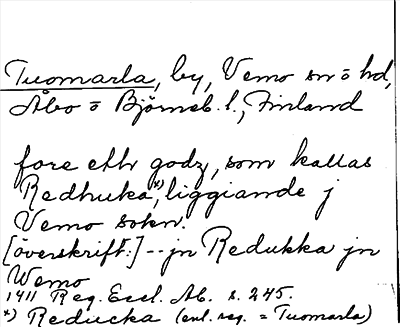 Tuomarla, by, Vemo sn o hd,
Åbo o Björneb. l., Finland
fore eth godz, som kallas
Redhuka *), liggiande j
Vemo sokn.
[överskrift:] -- jn Redukka jn
Wemo
1411 Reg. Eccl. Ab. s. 245.
*) Reducka (enl. reg. = Tuomarla)